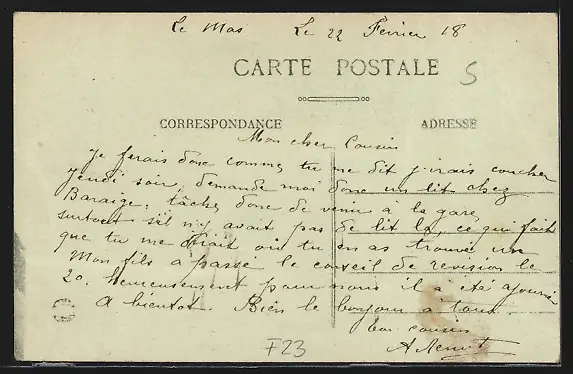 Le Mas Le 22 Février 18
CARTE POSTALE
5
CORRESPONDANCE ADRESSE
Mon cher Cousin
Je ferais donc comme tu me dit j'irais coucher
Jeudi soir, demande moi donc un lit chez
Baraige, tâche donc de venir à la gare
surtout s'il n'y avait pas de lit la, ce qui fait
que tu me dirait où tu en as trouvé un
Mon fils a passé le conseil de revision le
20. heureusement pour nous il a été ajourné
A bientot. Bien le bonjour à tous
ton cousin
A
F23